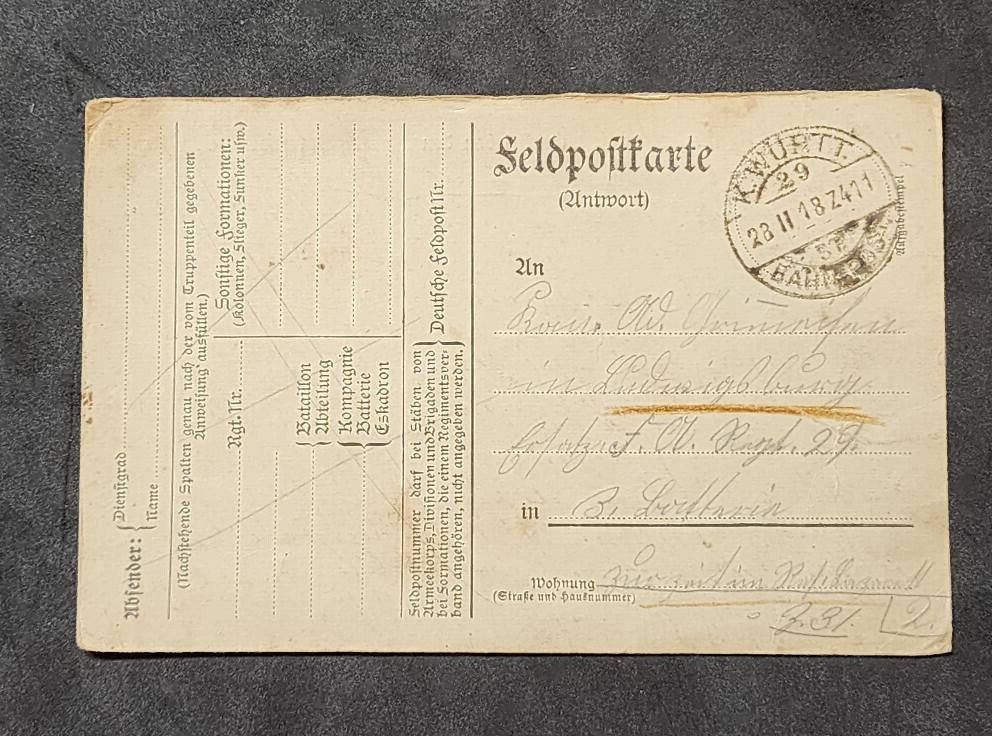 Feldpostkarte
(Antwort)
K. WÜRTT.
29
28 II 18 Z4-11
BAHNPOST
Aufgabestempel
An
in Ludwigsburg
Ersatz F. A. Regt. 29.
in 3. Batterie
Wohnung zur Zeit im
(Straße und Hausnummer)
Z. 31. 2.
Absender:
Dienstgrad
Name
(Nachstehende Spalten genau nach der vom Truppenteil gegebenen
Anweisung ausfüllen.)
Rgt. Nr.
Sonstige Formationen:
(Kolonnen, Flieger, Funker usw.)
Bataillon
Abteilung
Kompagnie
Batterie
Eskadron
Feldpostnummer darf bei Stäben von
Armeekorps, Divisionen und Brigaden und
bei Formationen, die einem Regimentsver-
band angehören, nicht angegeben werden.
Deutsche Feldpost Nr.